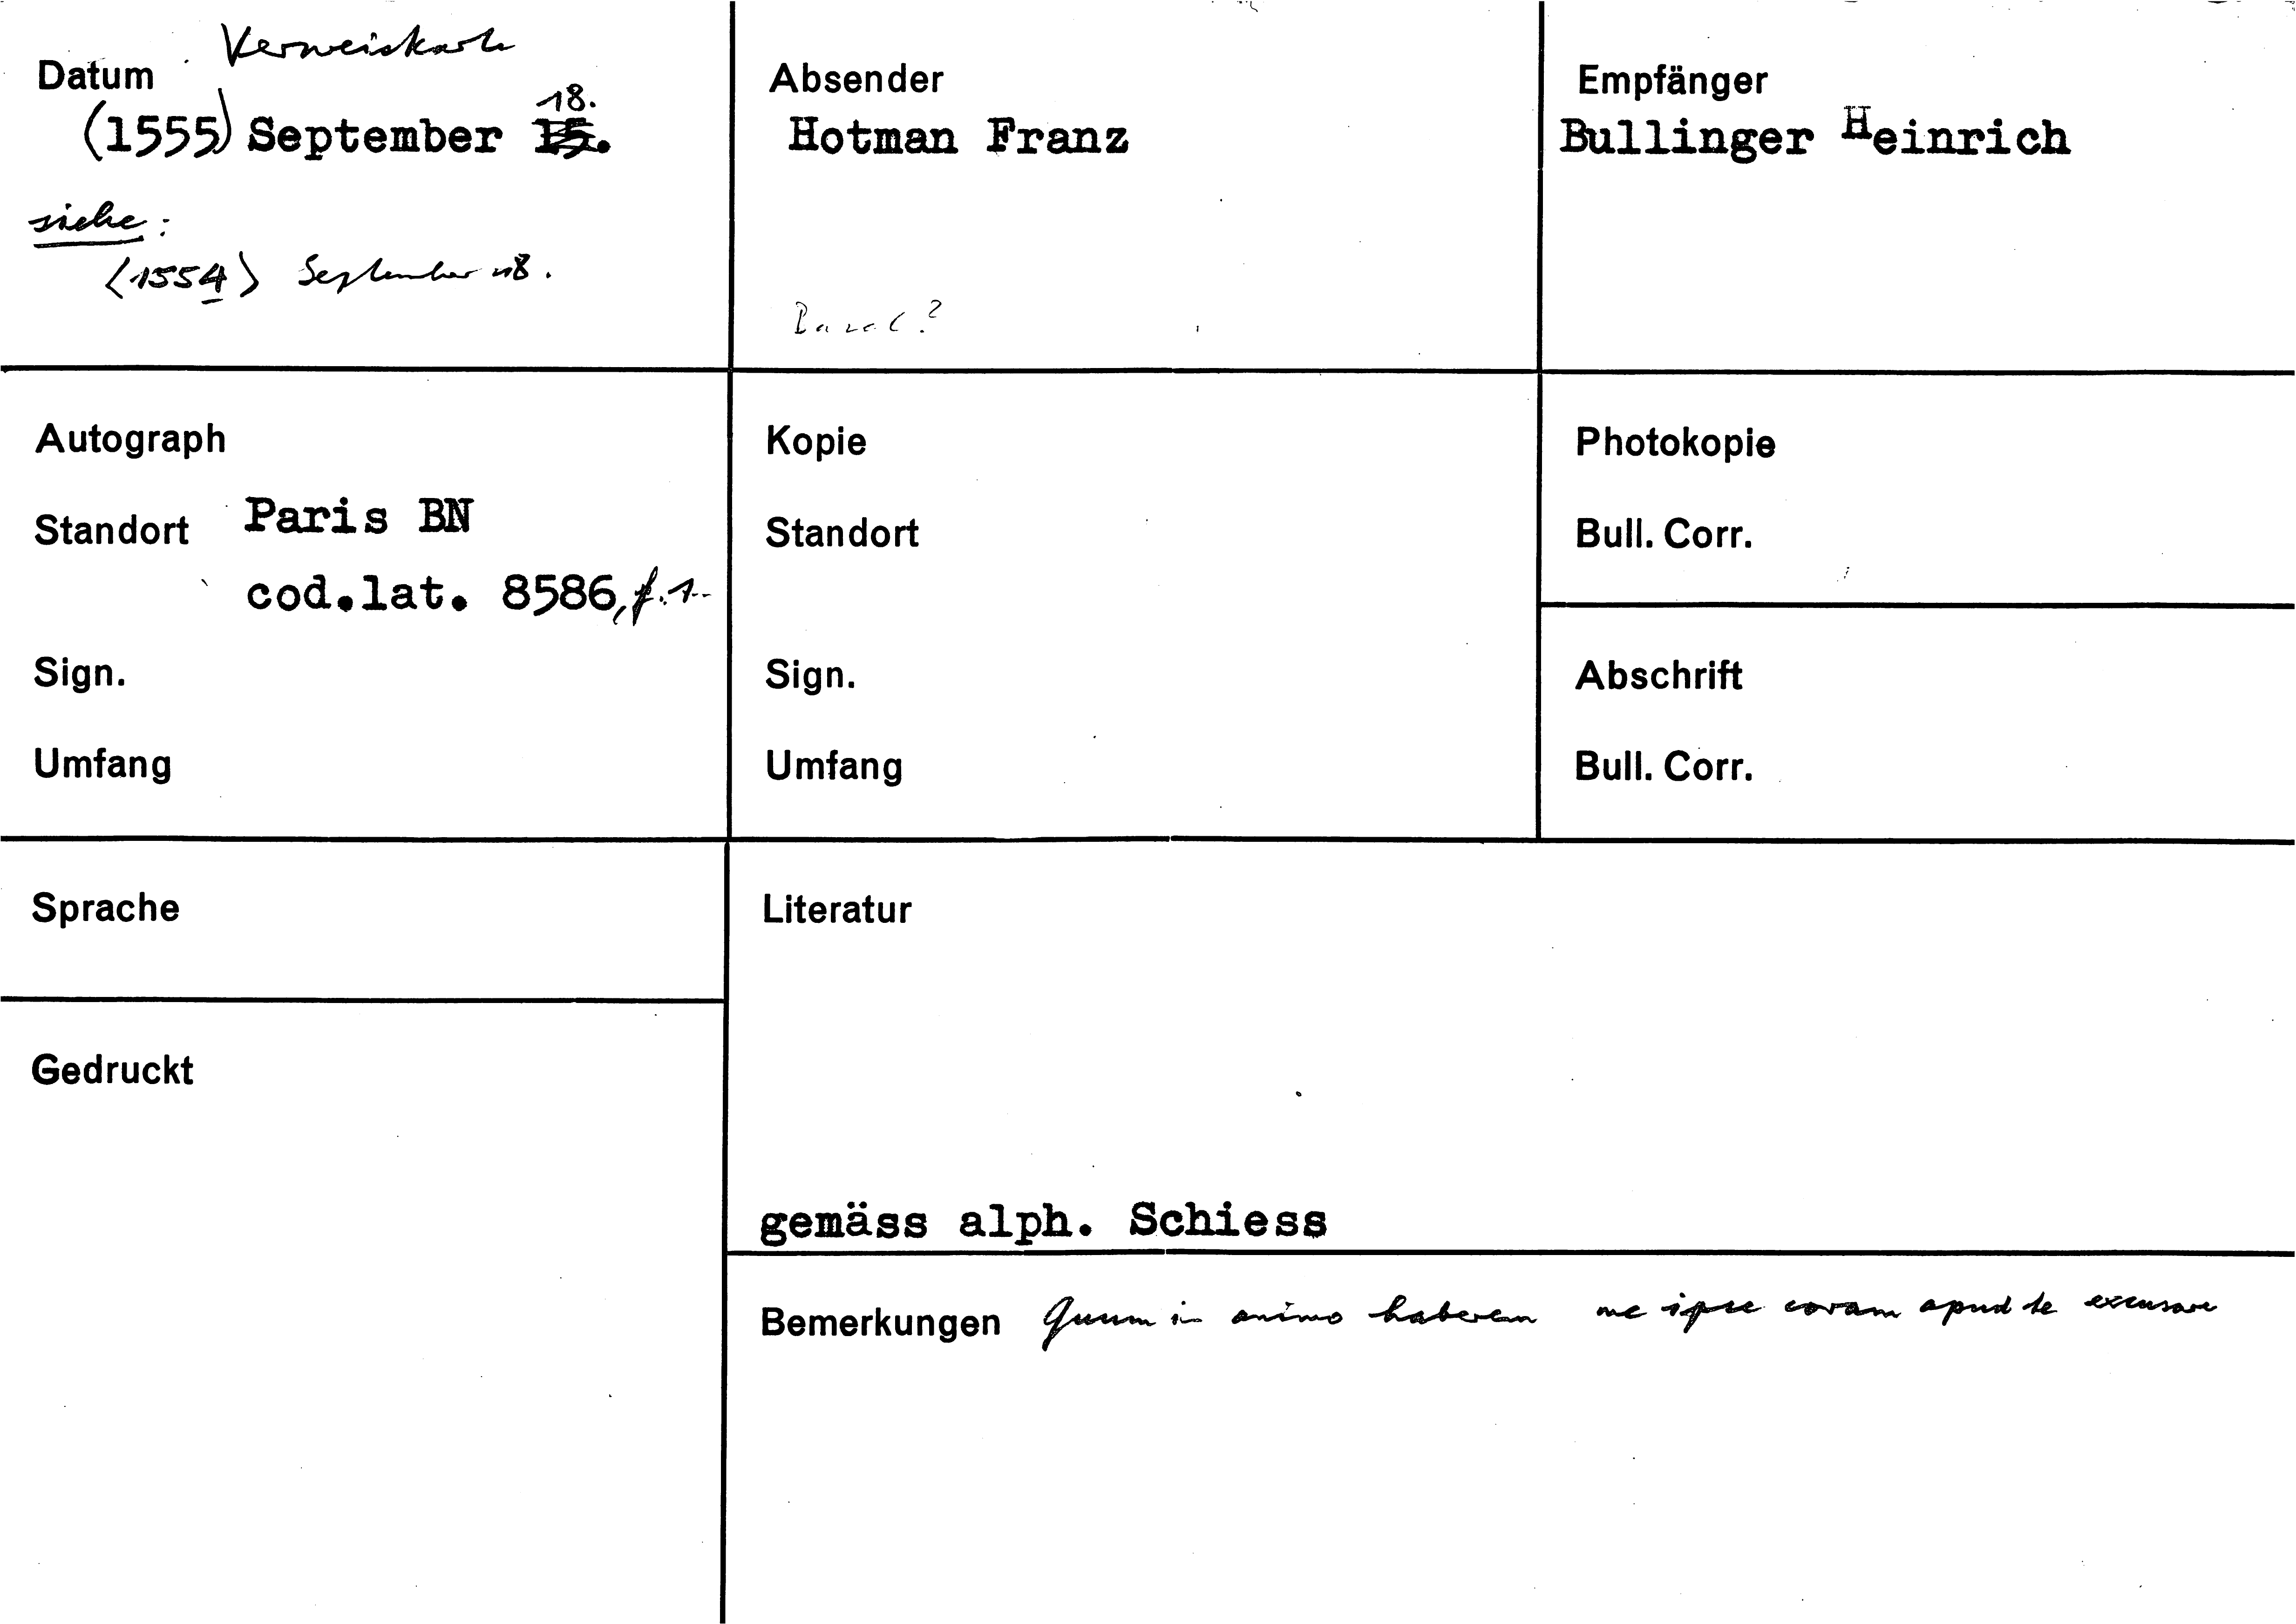 Verweiskarte
Datum
(1555) September 15. 18.
siehe:
<1554> September 18.
Absender
Hotman Franz
Basel?
Empfänger
Bullinger Heinrich
Autograph
Standort Paris BN
cod.lat. 8586, f. 1
Sign.
Umfang
Kopie
Standort
Sign.
Umfang
Photokopie
Bull. Corr.
Abschrift
Bull. Corr.
Sprache
Gedruckt
Literatur
gemäss alph. Schiess
Bemerkungen Quum in animo haberem me ipse coram apud te excusare